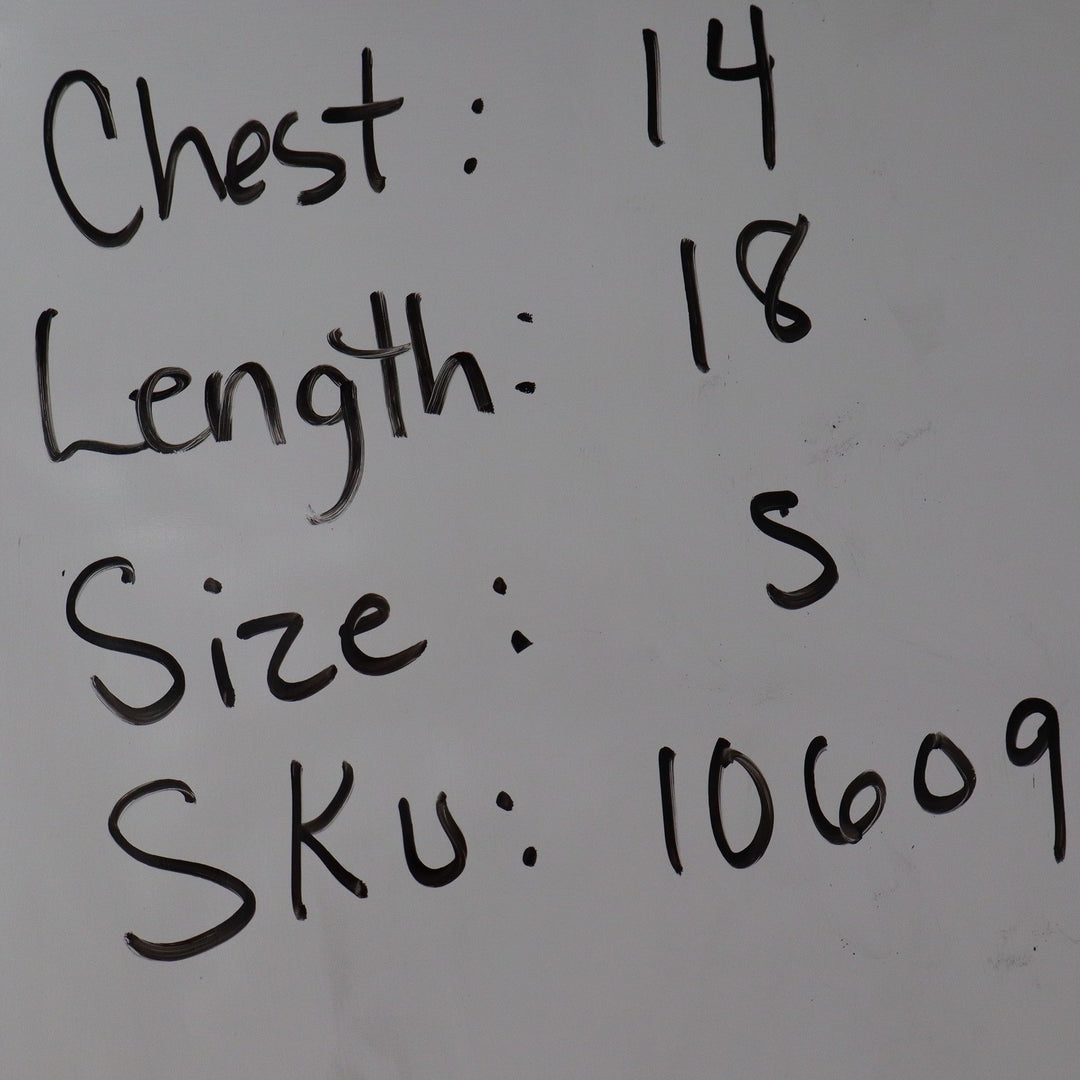 Chest: 14
Length: 18
Size: S
SKU: 10609